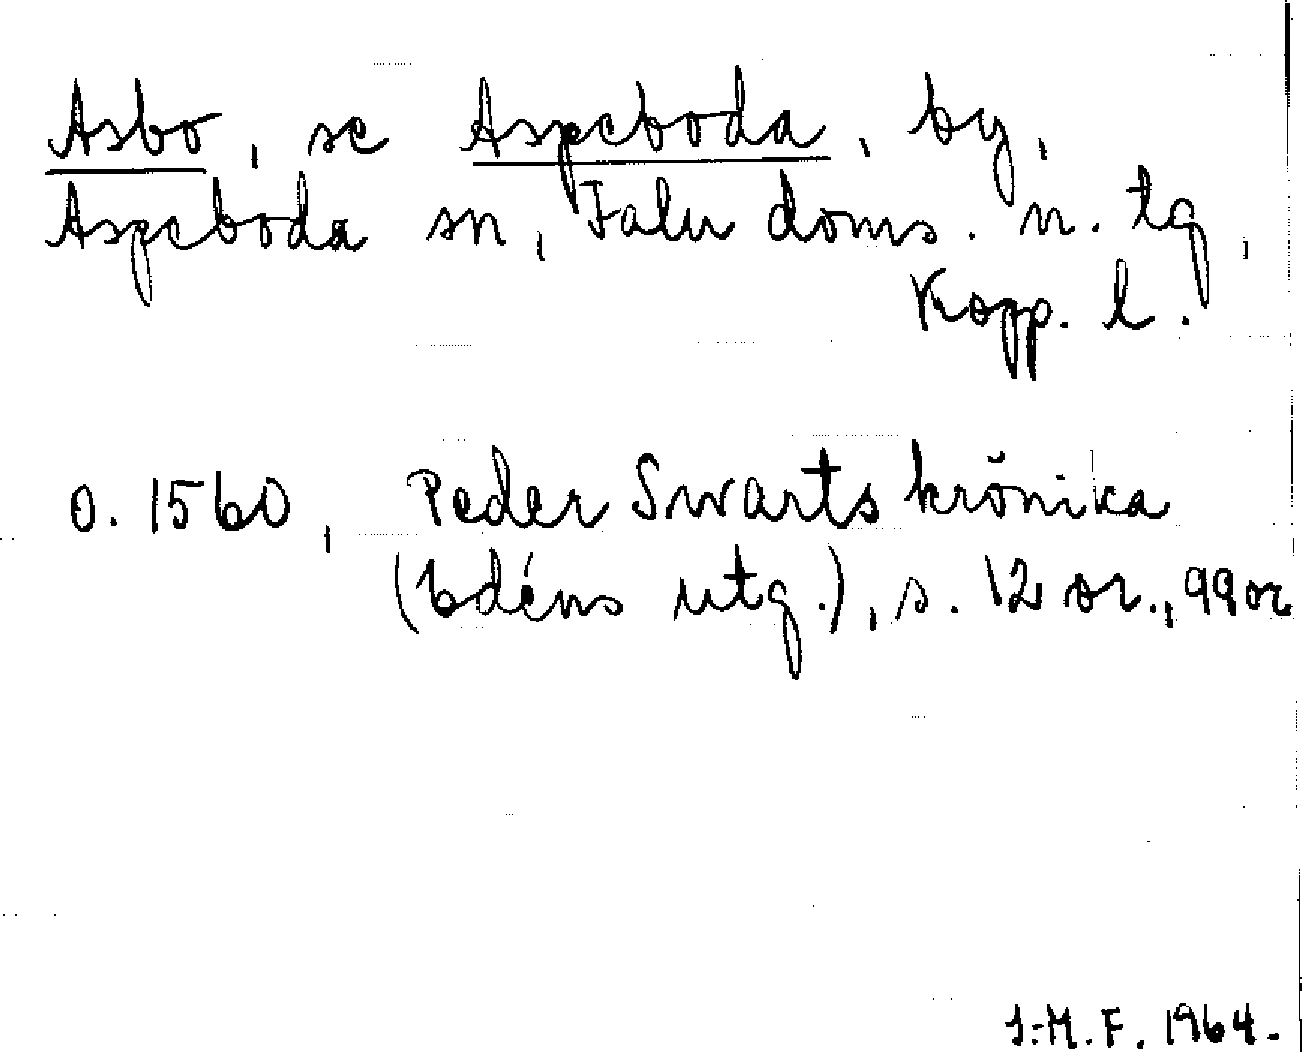 Asbo, se Aspeboda, by,
Aspeboda sn, Falu doms. n. tg,
Kopp. l.
o. 1560, Peder Swarts krönika
(Edéns utg.), s. 12 or., 99 or
I-M.F. 1964.